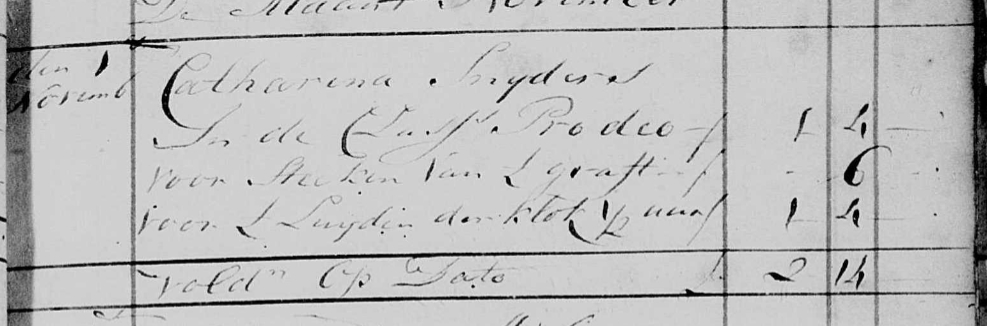 De Maant November
den 1
Novemb
Catharina Snyders
In de Class Prodeo f 1 4 —
voor Steeken van t graft f - 6 -
voor t Luyden der klok ½ uur f 1 4 —
voldn Op Dato f 2 14